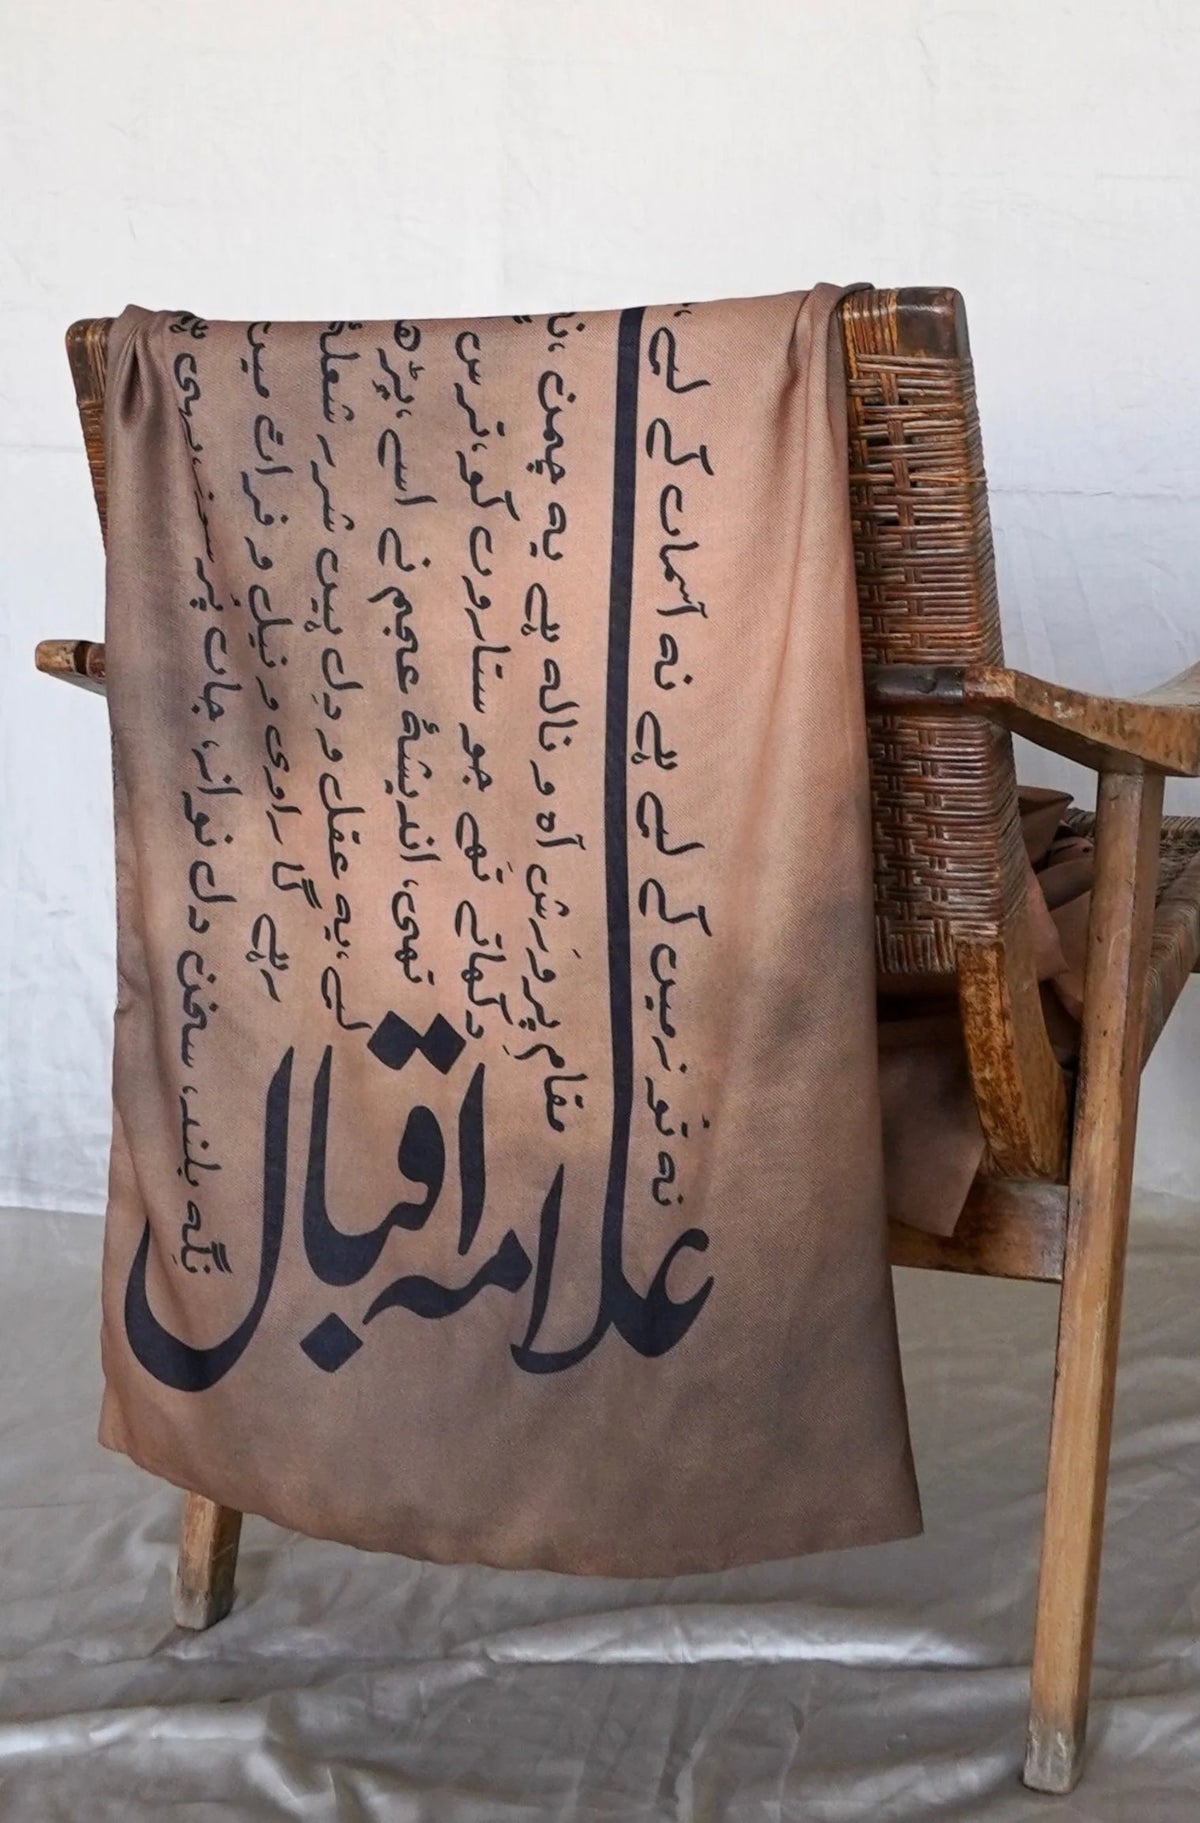 نہ تُو زمیں کے لیے ہے نہ آسماں کے لیے،
مقامِ پرورَش آہ و نالہ ہے یہ چمن،
دِکھاتے تھے جو ستاروں کو، ترس
تھی، اندیشۂ عجم نے اسے،
لیے، یہ عقل و دِل ہیں شرر شعلۂ
رہے گا راوی و نیل و فرات میں
نِگہ بلند، سخن دل نواز، جاں پُر سوز، یہی
علامہ اقبال